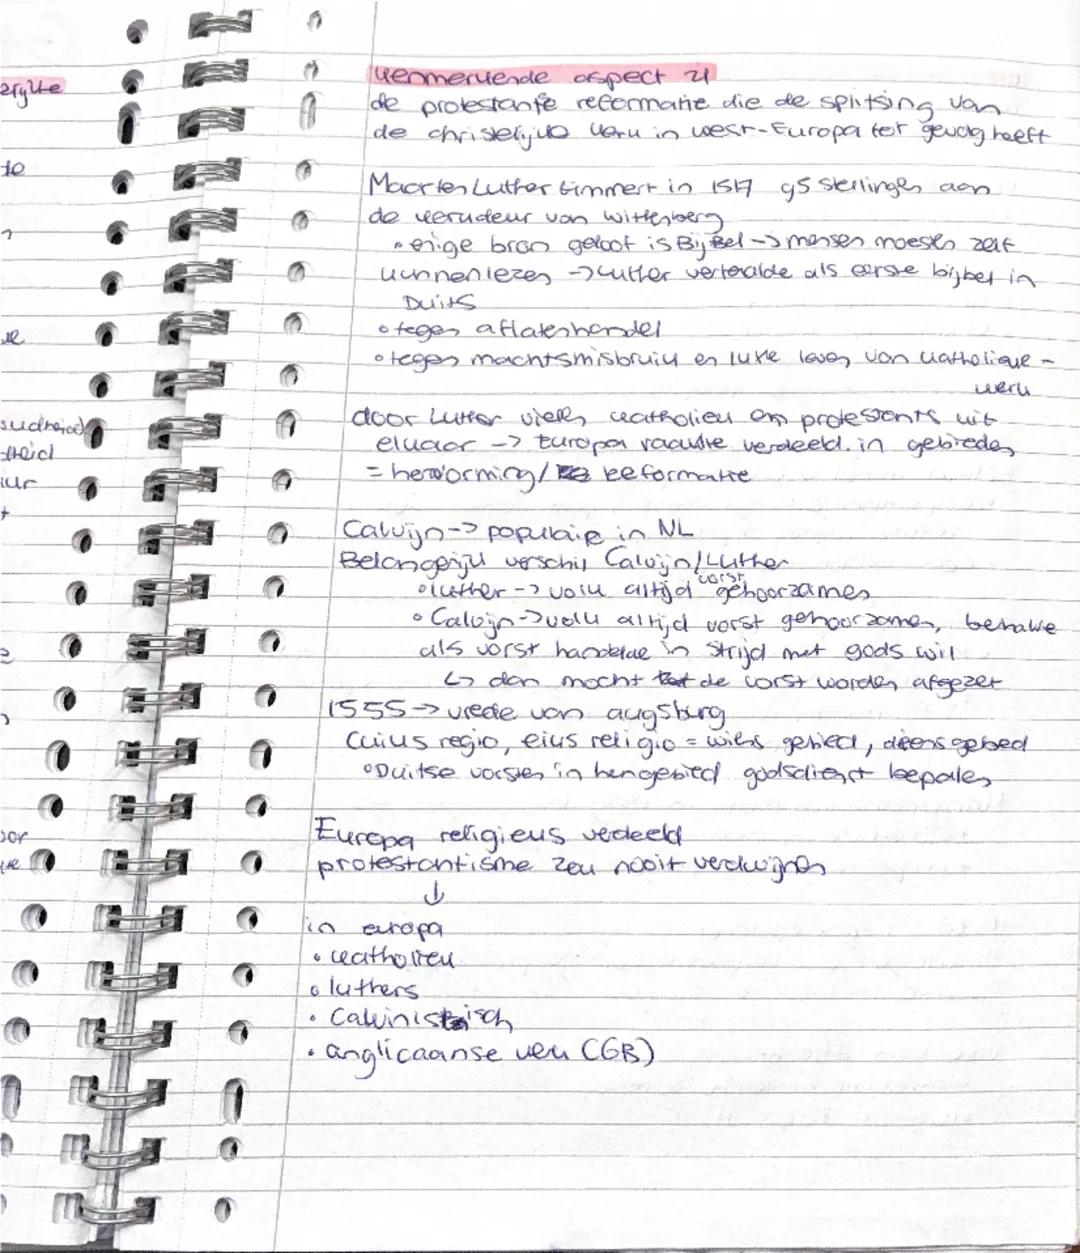 erijke
te
n
ie
sudheid
theid
uur
t
e
oor
ke
kenmerkende aspect 21
de protestante reformatie die de splitsing van
de christelijke kerk in west-Europa tot gevolg heeft
Maarten Luther timmert in 1517 95 stellingen aan
de kerkdeur van wittenberg
• enige bron geloof is Bijbel -> mensen moesten zelf
kunnen lezen -> Luther vertaalde als eerste bijbel in
Duits
• tegen aflatenhandel
• tegen machtsmisbruik en luxe leven van katholieke -
kerk
door Luther vielen katholiek en protestants uit
elkaar -> Europa raakte verdeeld. in gebieden
= hervorming/ reformatie
Calvijn -> populair in NL
Belangerijk verschil Calvijn/Luther
• luther -> volk altijd vorst gehoorzamen
• Calvijn -> volk altijd vorst gehoorzamen, behalve
als vorst handelde in strijd met gods wil
↳ dan mocht de vorst worden afgezet
1555 -> vrede van augsburg
Cuius regio, eius religio = wiens gebied, diens gebed
• Duitse vorsten in hen gebied godsdienst bepalen
Europa religieus verdeeld
protestantisme zou nooit verdwijnen
↓
in europa
• katholiek
• luthers
• Calvinistisch
• anglicaanse kerk (GB)